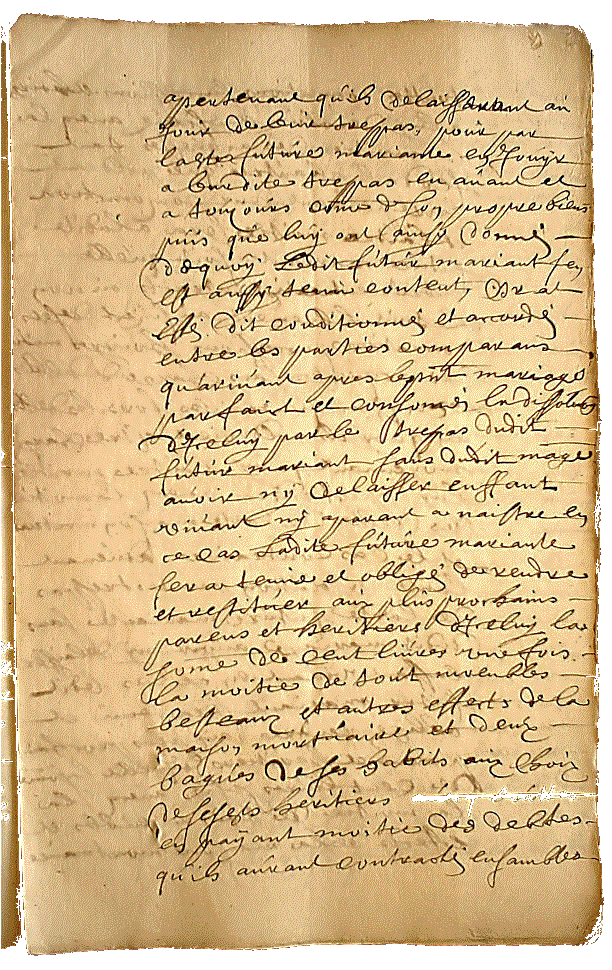 apertenant qu'ils delaisseront au
Jour de leur trespas, pour par
ladte future mariante en Jouyr
a leurdite trespas en avant et
a toujours come de son propre bien
puis que luy ont ainsy donné
De quoy Ledit futur mariant s'en
est aussy tenu content, Or at
Esté dit conditionné et accordé
entre les parties comparans
qu'arivant apres le pnt mariage
parfaict et consomé la dissolution
d'Iceluy par le trespas dudit
futur mariant sans dudit mage
avoir ny delaisser enffant
vivant ny aparant a naistre en
ce cas Ladite future mariante
sera tenue et obligé de rendre
et restituer aux plus prochains
parens et heritiers d'Iceluy la
some de Cent livres une fois
la moitié de tout meubles
besteaux et autres effects de la
maison mortuaire et deux
bagues De ses habits aux Choix
De sesdts heritiers
en payant moitié des debtes
qu'ils auront contracté ensambles